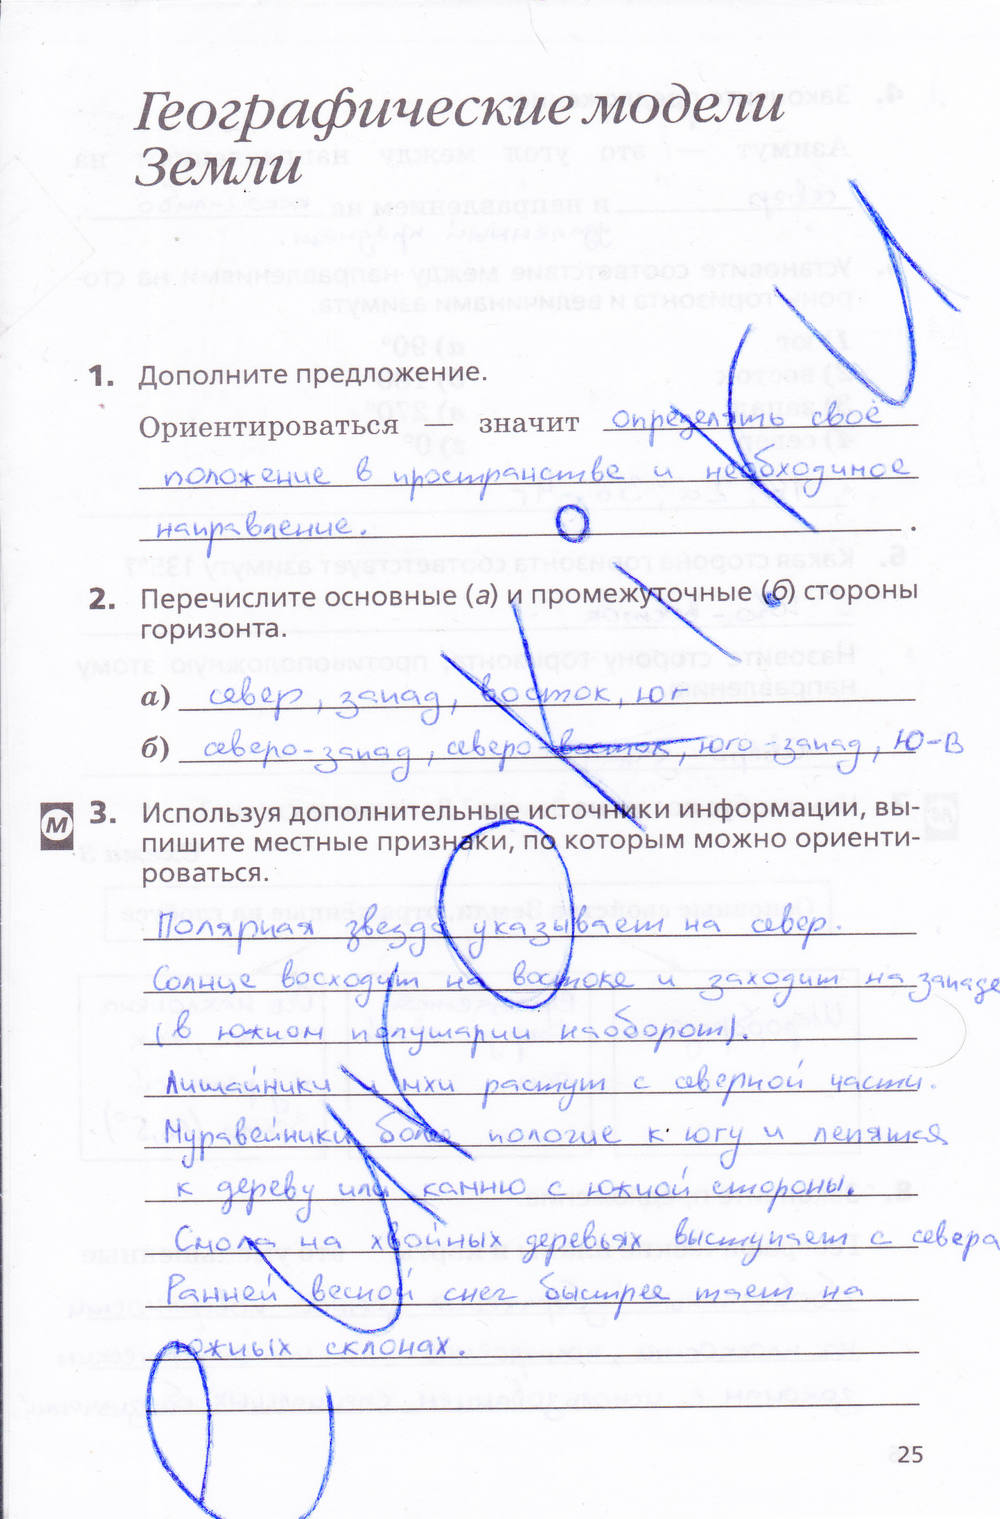 Географические модели
Земли
1. Дополните предложение.
Ориентироваться — значит определять своё
положение в пространстве и необходимое
направление.
2. Перечислите основные (а) и промежуточные (б) стороны
горизонта.
а) север, запад, восток, юг
б) северо-запад, северо-восток, юго-запад, Ю-В
М 3. Используя дополнительные источники информации, вы-
пишите местные признаки, по которым можно ориенти-
роваться.
Полярная звезда указывает на север.
Солнце восходит на востоке и заходит на западе
(в южном полушарии наоборот).
Лишайники и мхи растут с северной части.
Муравейники более пологие к югу и лепятся
к дереву или камню с южной стороны.
Смола на хвойных деревьях выступает с севера
Ранней весной снег быстрее тает на
южных склонах.
25